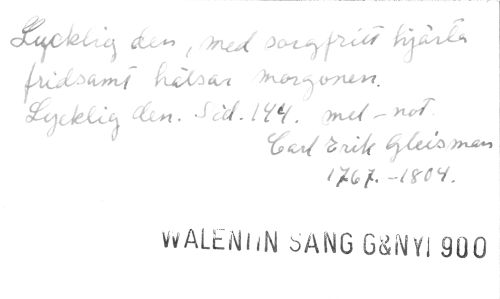 Lycklig den, med sorgfritt hjärta
fridsamt hälsar morgonen.
Lycklig den. Sid. 144. mel-not.
Carl Erik Gleisman
1767.-1804.
WALENTIN SANG G&NYI 900